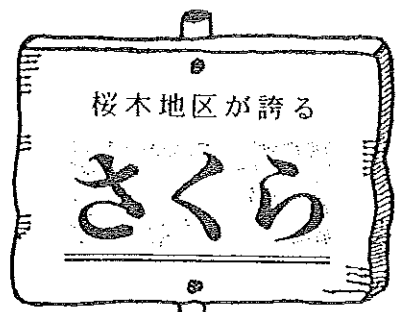 桜木地区が誇る
さくら